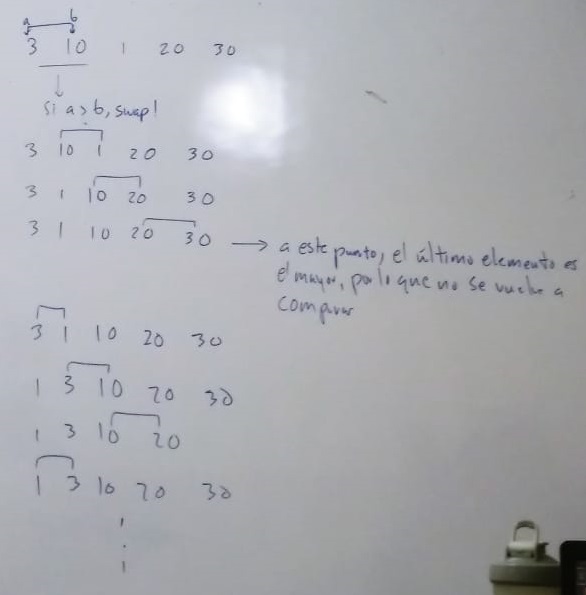 a b
3 10 1 20 30
si a > b, swap!
3 10 1 20 30
3 1 10 20 30
3 1 10 20 30 → a este punto, el último elemento es
el mayor, por lo que no se vuelve a
comparar
3 1 10 20 30
1 3 10 20 30
1 3 10 20
1 3 10 20 30